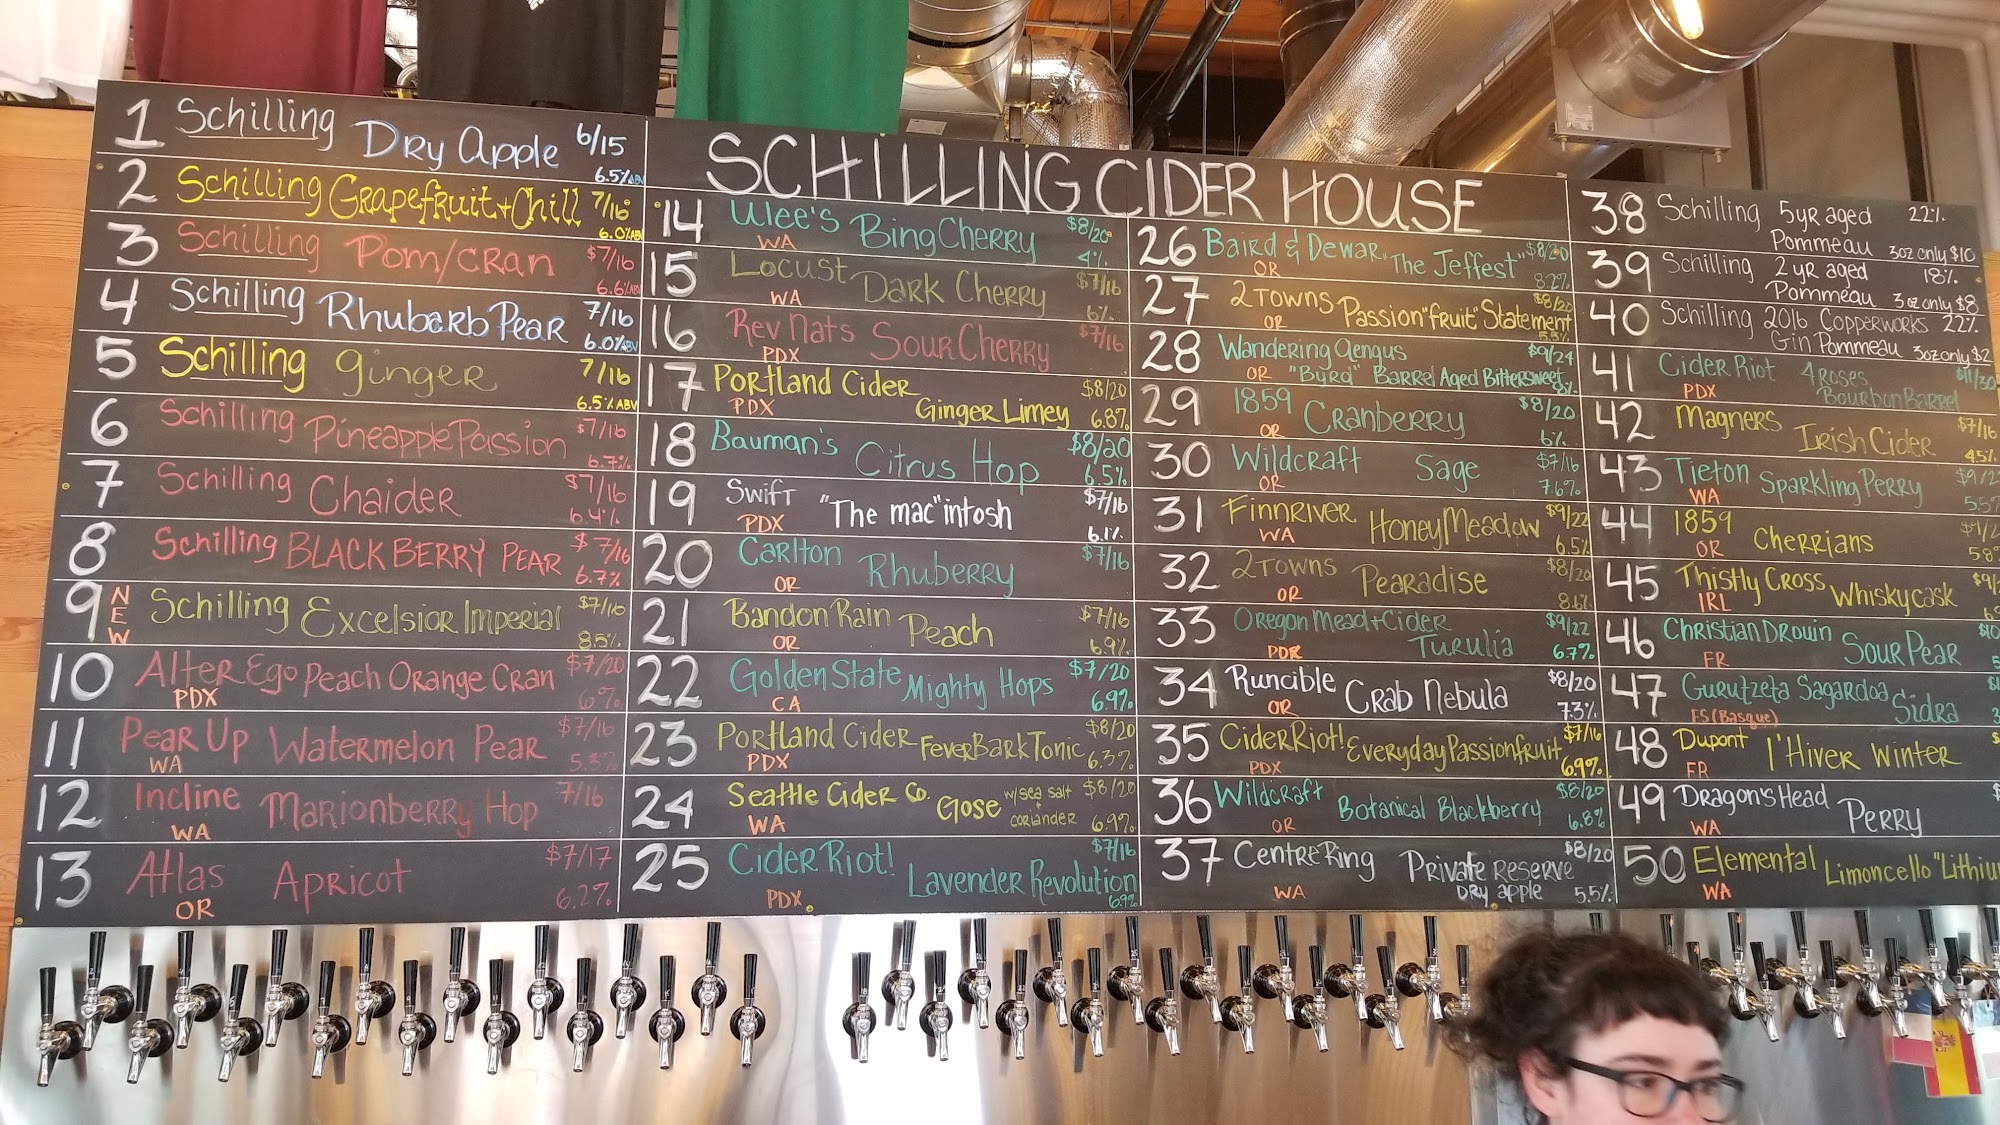 SCHILLING CIDER HOUSE
1 Schilling Dry Apple 6/15
6.5% ABV
2 Schilling Grapefruit + Chill 7/16
6.0% ABV
3 Schilling Pom/Cran $7/16
6.6% ABV
4 Schilling Rhubarb Pear 7/16
6.0% ABV
5 Schilling Ginger 7/16
6.5% ABV
6 Schilling Pineapple Passion $7/16
6.7%
7 Schilling Chaider $7/16
6.4%
8 Schilling BLACKBERRY PEAR $7/16
6.7%
9 NEW Schilling Excelsior Imperial $7/16
8.5%
10 Alter Ego Peach Orange Cran $7/20
PDX 6%
11 Pear Up Watermelon Pear $7/16
WA 5.3%
12 Incline Marionberry Hop 7/16
WA
13 Atlas Apricot $7/17
OR 6.2%
14 Wlee's Bing Cherry $8/20
WA 4%
15 Locust Dark Cherry $7/16
WA 6%
16 Rev Nats Sour Cherry $7/16
PDX
17 Portland Cider Ginger Limey $8/20
PDX 6.8%
18 Bauman's Citrus Hop $8/20
6.5%
19 Swift "The mac"intosh $7/16
PDX 6.1%
20 Carlton Rhuberry $7/16
OR
21 Bandon Rain Peach $7/16
OR 6.9%
22 Golden State Mighty Hops $7/20
CA 6.9%
23 Portland Cider Fever Bark Tonic $8/20
PDX 6.3%
24 Seattle Cider Co. Gose w/sea salt + coriander $8/20
WA 6.9%
25 Cider Riot! Lavender Revolution $7/16
PDX 6.9%
26 Baird & Dewar "The Jeffest" $8/20
OR 8.2%
27 2 Towns Passion "fruit" Statement $8/20
OR 5.5%
28 Wandering Aengus $9/24
OR "Byrd" Barrel Aged Bittersweet 8%
29 1859 Cranberry $8/20
OR 6%
30 Wildcraft Sage $7/16
OR 7.6%
31 Finnriver Honey Meadow $9/22
WA 6.5%
32 2 Towns Pearadise $8/20
OR 8.6%
33 Oregon Mead + Cider Turulia $9/22
PDX 6.7%
34 Runcible Crab Nebula $8/20
OR 7.3%
35 Cider Riot! Everyday Passionfruit $7/16
PDX 6.9%
36 Wildcraft Botanical Blackberry $8/20
OR 6.8%
37 Centre Ring Private Reserve $8/20
WA Dry apple 5.5%
38 Schilling 5yr aged 22%
Pommeau 3oz only $10
39 Schilling 2 yr aged 18%
Pommeau 3oz only $8
40 Schilling 2016 Copperworks 22%
Gin Pommeau 3oz only $2
41 Cider Riot 4 Roses $11/30
PDX Bourbon Barrel
42 Magners Irish Cider $7/16
4.5%
43 Tieton Sparkling Perry
WA
44 1859 Cherrians
OR
45 Thistly Cross Whisky cask
IRL
46 Christian Drouin Sour Pear
FR
47 Gurutzeta Sagardoa Sidra
ES (Basque)
48 Dupont l'Hiver Winter
FR
49 Dragon's Head Perry
WA
50 Elemental Limoncello
WA